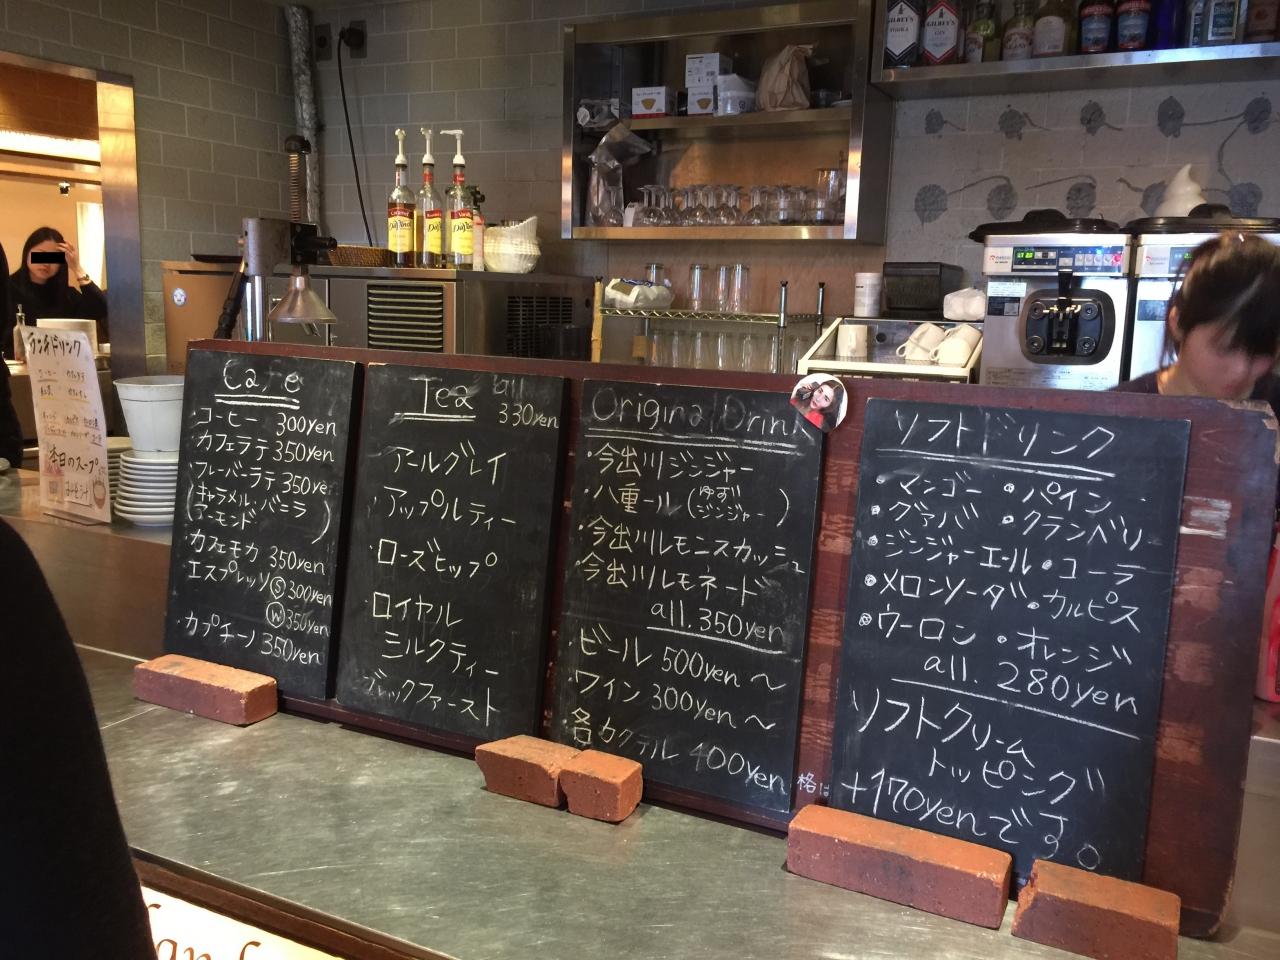 Cafe
コーヒー 300yen
カフェラテ 350yen
フレーバーラテ 350ye
(キャラメル・バニラ
アーモンド)
カフェモカ 350yen
エスプレッソ Ⓢ 300yen
Ⓦ 350yen
カプチーノ 350yen
Tea all
330yen
アールグレイ
・アップルティー
・ローズヒップ
・ロイヤル
ミルクティー
ブレックファースト
Original Drink
・今出川ジンジャー
・八重ール(ゆず ジンジャー)
・今出川レモンスカッシュ
・今出川レモネード
all. 350yen
・ビール 500yen 〜
・ワイン 300yen 〜
・各カクテル 400yen
ソフトドリンク
・マンゴー ・パイン
・グァバ ・クランベリー
・ジンジャーエール ・コーラ
・メロンソーダ ・カルピス
・ウーロン ・オレンジ
all. 280yen
ソフトクリーム
トッピング
+170yenです。
格は
ランチドリンク
本日のスープ
みそ汁
DaVinci
DaVinci
DaVinci
GILBEY'S
VODKA
GILBEY'S
GIN